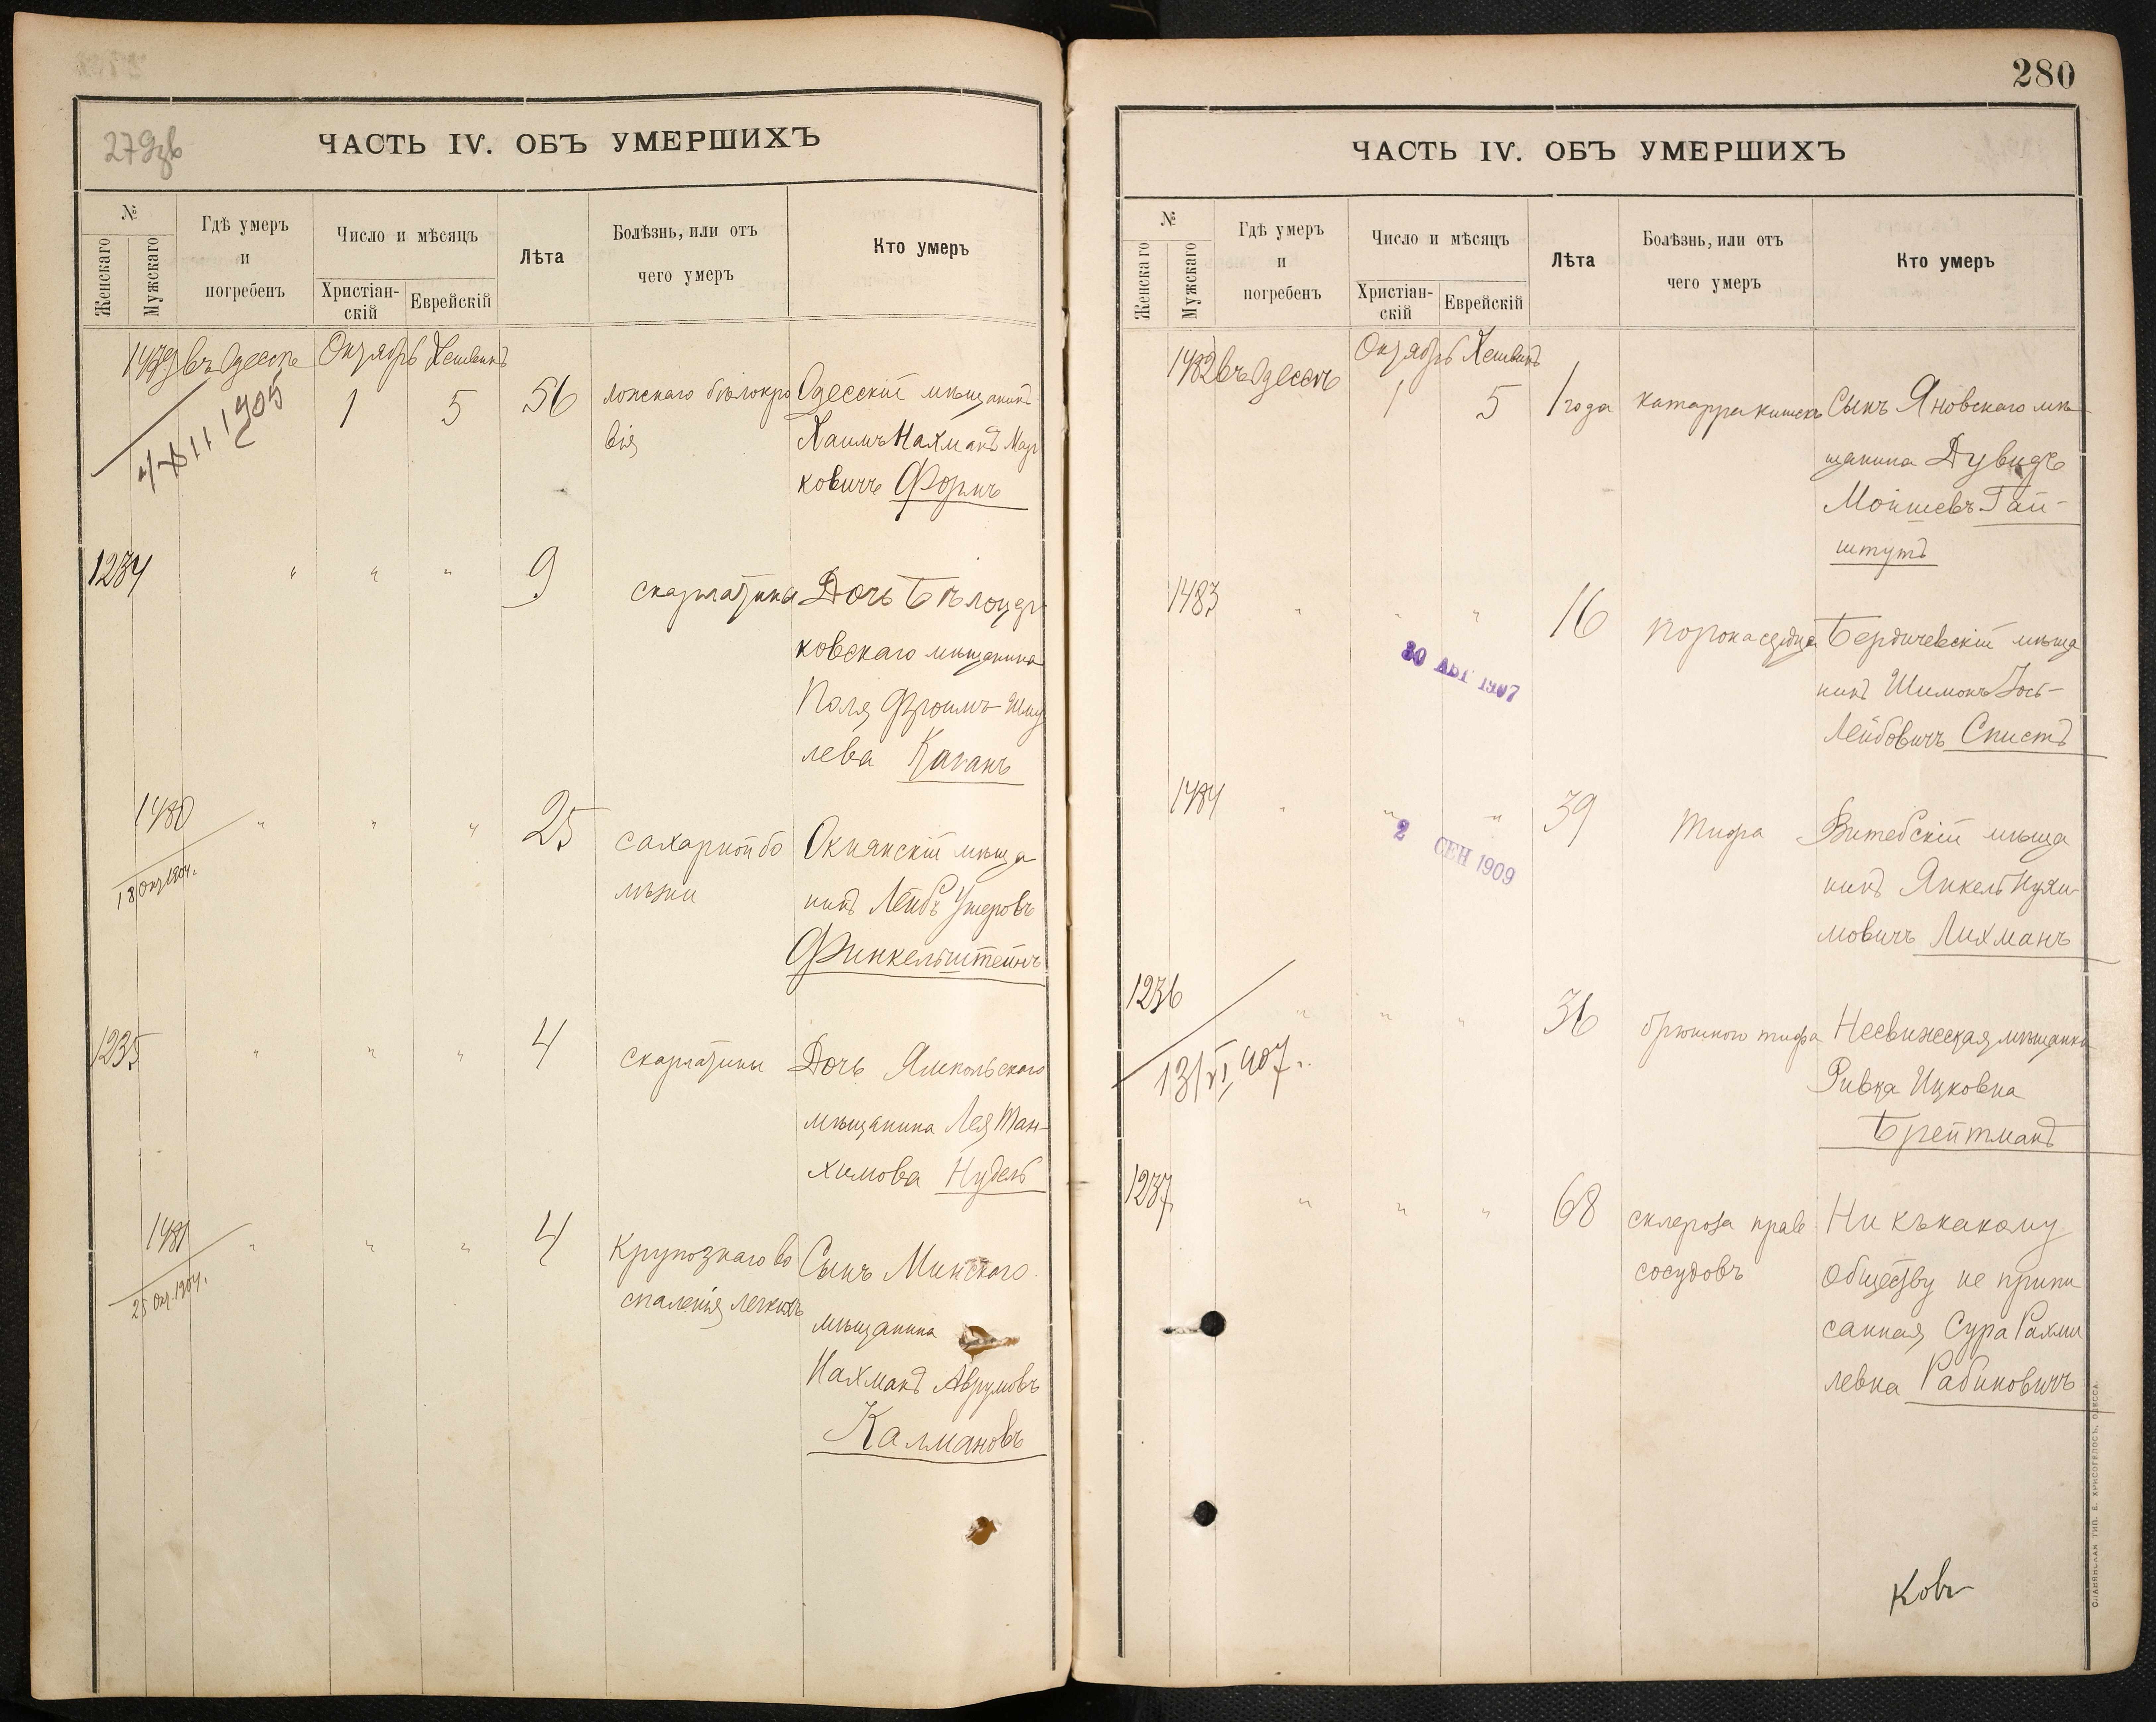 279зв
ЧАСТЬ IV. ОБЪ УМЕРШИХЪ
№
Женскаго
Мужскаго
Гдѣ умеръ
и
погребенъ
Число и мѣсяцъ
Христіан-
скій
Еврейскій
Лѣта
Болѣзнь, или отъ
чего умеръ
Кто умеръ
1479 въ Одессѣ Октябрь Хешванъ
1 5 56 ложнаго бѣлокро Одесскій мѣщанинъ
вія Хаимъ Нахманъ Мар
ковичъ Формъ
XII 1905
1234 " " " 9 скарлатины Дочь Бѣлоцер
ковскаго мѣщанина
Поля Фроимъ-Шму
лева Каганъ
1480 " " " 25 сахарной бо Окнянскій мѣща
лѣзни нинъ Лейбъ Ушеровъ
Финкельштейнъ
18 Окт 1904.
1235 " " " 4 скарлатины Дочь Ямпольскаго
мѣщанина Лея Тан-
химова Нудель
1481 " " " 4 Крупознаго во Сынъ Минскаго
спаленія легкихъ мѣщанина
Нахманъ Аврумовъ
Калмановъ
25 Окт. 1904.
280
ЧАСТЬ IV. ОБЪ УМЕРШИХЪ
№
Женскаго
Мужскаго
Гдѣ умеръ
и
погребенъ
Число и мѣсяцъ
Христіан-
скій
Еврейскій
Лѣта
Болѣзнь, или отъ
чего умеръ
Кто умеръ
1482 въ Одессѣ Октябрь Хешванъ
1 5 1 года катарра кишекъ Сынъ Яновскаго мѣ
щанина Дувидъ
Мойшевъ Гай-
штутъ
1483 " " " 16 порока сердца Бердичевскій мѣща
нинъ Шимонъ Іось-
Лейбовичъ Спистъ
30 АВГ 1907
1484 " " " 39 тифа Витебскій мѣща
нинъ Янкель Нухи-
мовичъ Лихманъ
2 СЕН 1909
1236 " " " 36 брюшного тифа Несвижеская мѣщанка
Ривка Ицковна
Брейтманъ
13/VI 907 г.
1237 " " " 68 склероза крове Ни къ какому
сосудовъ обществу не припи
санная Сура Рахми
левна Рабиновичъ
Ков
СЛАВЯНСКАЯ ТИП. Е. ХРИСОГЕЛОСЪ, ОДЕССА.